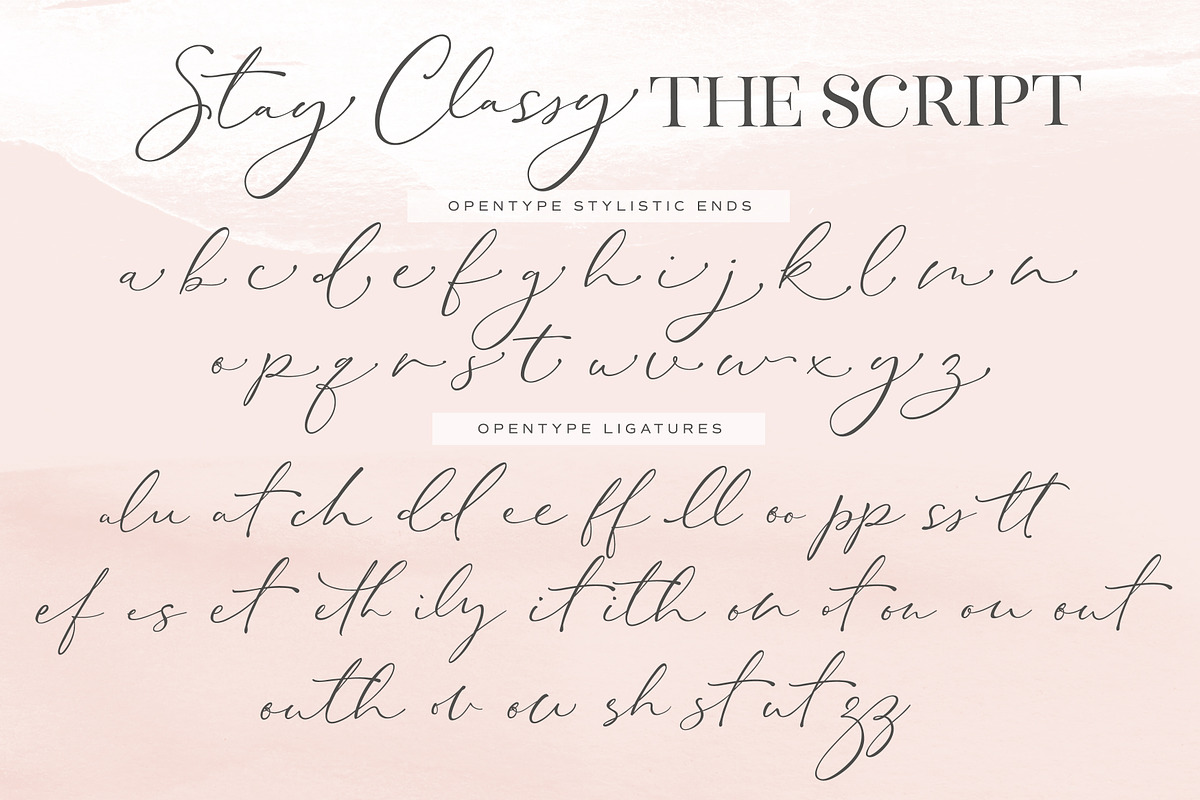 Stay Classy THE SCRIPT
OPENTYPE STYLISTIC ENDS
a b c d e f g h i j k l m n
o p q r s t u v w x y z
OPENTYPE LIGATURES
alu at ch dd ee ff ll oo pp ss tt
ef es et eth ily it ith on ot ou ou out
outh ov ow sh st ut zz